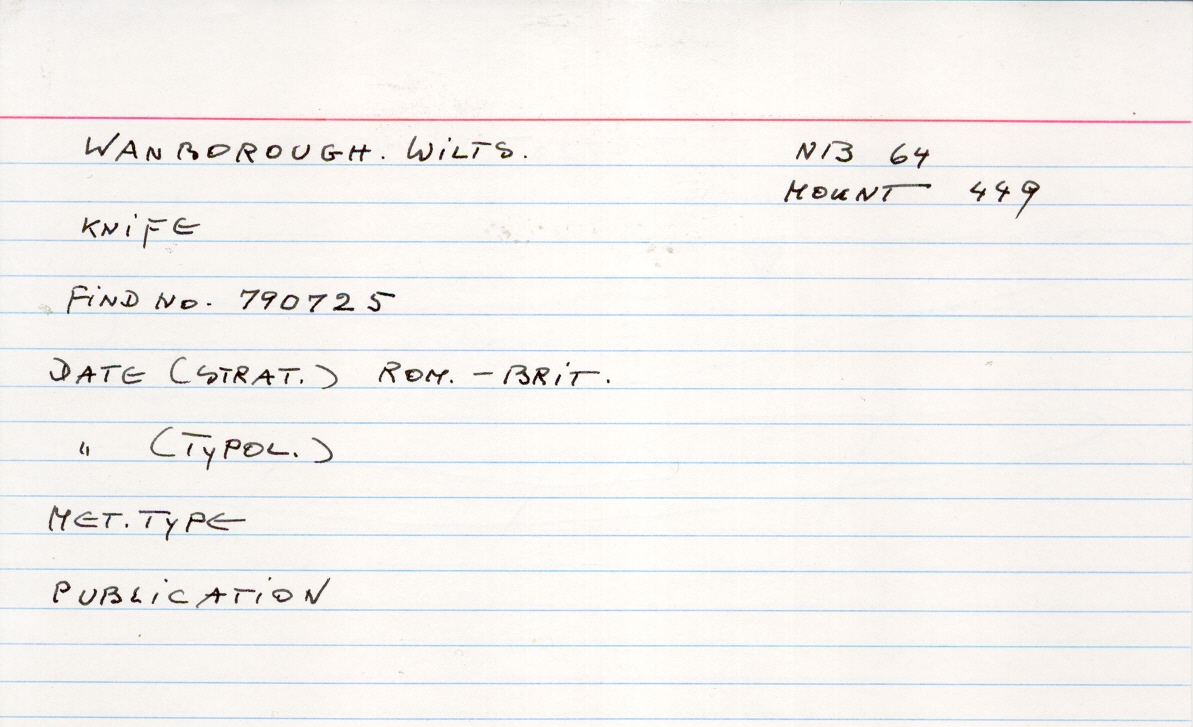 WANBOROUGH. WiLTS.
NB 64
MOUNT 449
KNiFE
FiND No. 790725
DATE (STRAT.) ROM. - BRiT.
" (TyPOL.)
MET. TyPE
PUBLiCATiON